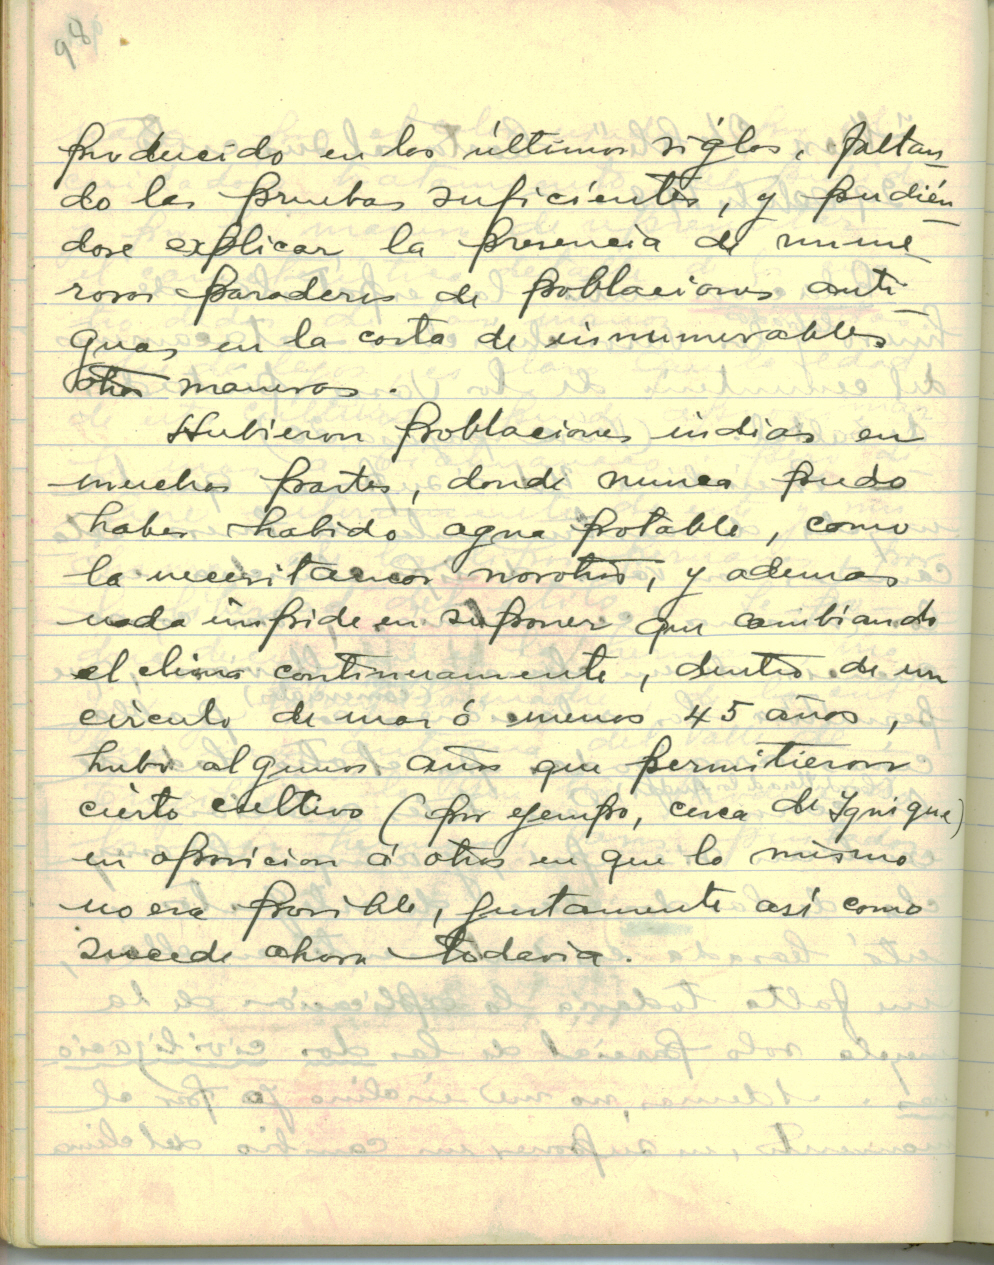 98
producido en los últimos siglos, faltan
do las pruebas suficientes, y pudién
dose explicar la presencia de nume
rosos paraderos de poblaciones anti
guas en la costa de innumerables
otras maneras.
Hubieron poblaciones indias en
muchas partes, donde nunca pudo
haber habido agua potable, como
la necesitamos nosotros, y ademas
nada impide en suponer que cambiando
el clima continuamente, dentro de un
circulo de mas ó menos 45 años,
hubo algunos años que permitieron
cierto cultivo (por ejempo, cerca de Iquique)
en oposicion á otros en que lo mismo
no era posible, justamente así como
sucede ahora todavia.